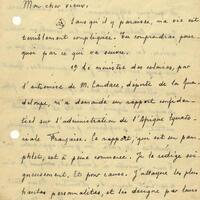 Mon cher vieux,
Sans qu'il y paraisse, ma vie est
terriblement compliquée. Tu comprendras pour
quoi par ce qui va suivre.
1º Le ministre des colonies, par
l'entremise de M. Candace, député de la Gua
deloupe, m'a demandé un rapport confiden
tiel sur l'administration de l'Afrique Equato
riale Française. Ce rapport, qui est un pam
phlet, est à peine commencé. Je le rédige soi
gneusement. Et pour cause. J'attaque les plus
hautes personnalités, et les désigne par leurs